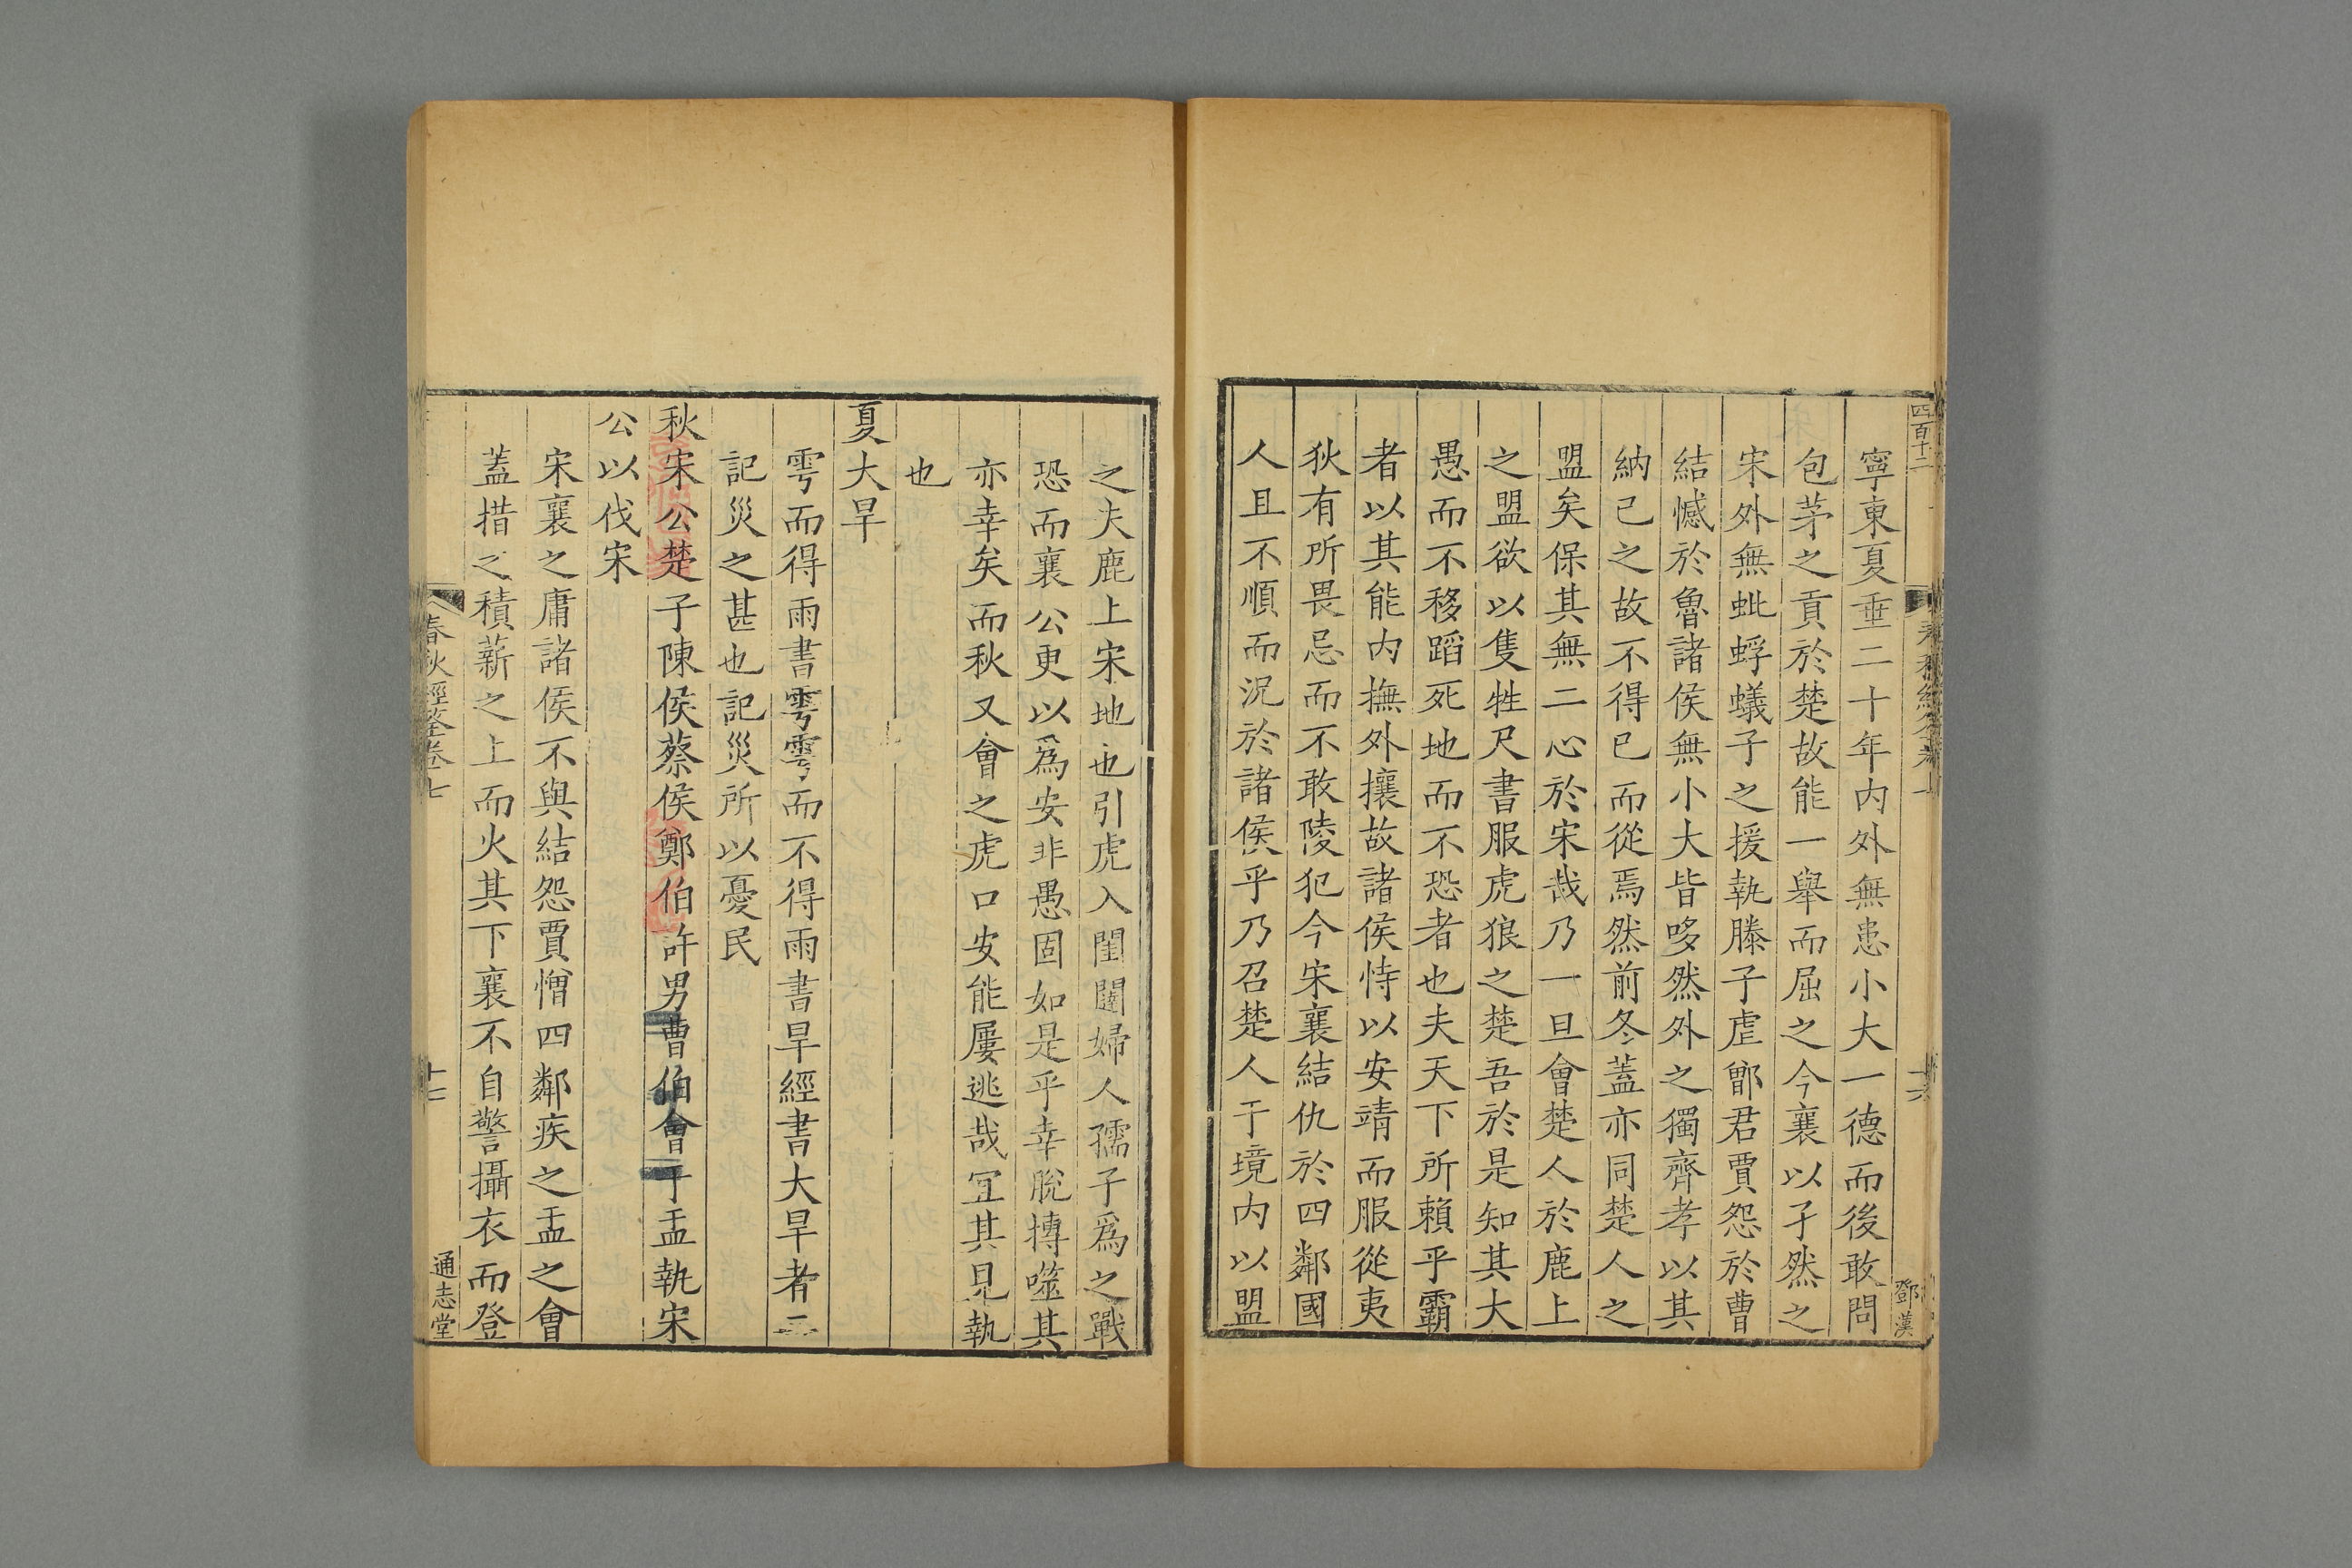 四百十二
寧東夏垂二十年内外無患小大一德而後敢問
包茅之貢於楚故能一舉而屈之今襄以孑然之
宋外無蚍蜉蟻子之援執滕子虐鄫君賈怨於曹
結憾於魯諸侯無小大皆哆然外之獨齊孝以其
納己之故不得已而從焉然前冬蓋亦同楚人之
盟矣保其無二心於宋哉乃一旦會楚人於鹿上
之盟欲以隻牲尺書服虎狼之楚吾於是知其大
愚而不移蹈死地而不恐者也夫天下所賴乎霸
者以其能内撫外攘故諸侯恃以安靖而服從夷
狄有所畏忌而不敢陵犯今宋襄結仇於四鄰國
人且不順而況於諸侯乎乃召楚人于境内以盟
十六
鄧漢
之夫鹿上宋地也引虎入閨闥婦人孺子爲之戰
恐而襄公更以爲安非愚固如是乎幸脫摶噬其
亦幸矣而秋又會之虎口安能屢逃哉宜其見執
也
夏大旱
雩而得雨書雩雩而不得雨書旱經書大旱者二
記災之甚也記災所以憂民
秋宋公楚子陳侯蔡侯鄭伯許男曹伯會于盂執宋
公以伐宋
宋襄之庸諸侯不與結怨賈憎四鄰疾之盂之會
蓋措之積薪之上而火其下襄不自警攝衣而登
春秋經筌卷七
十七
通志堂